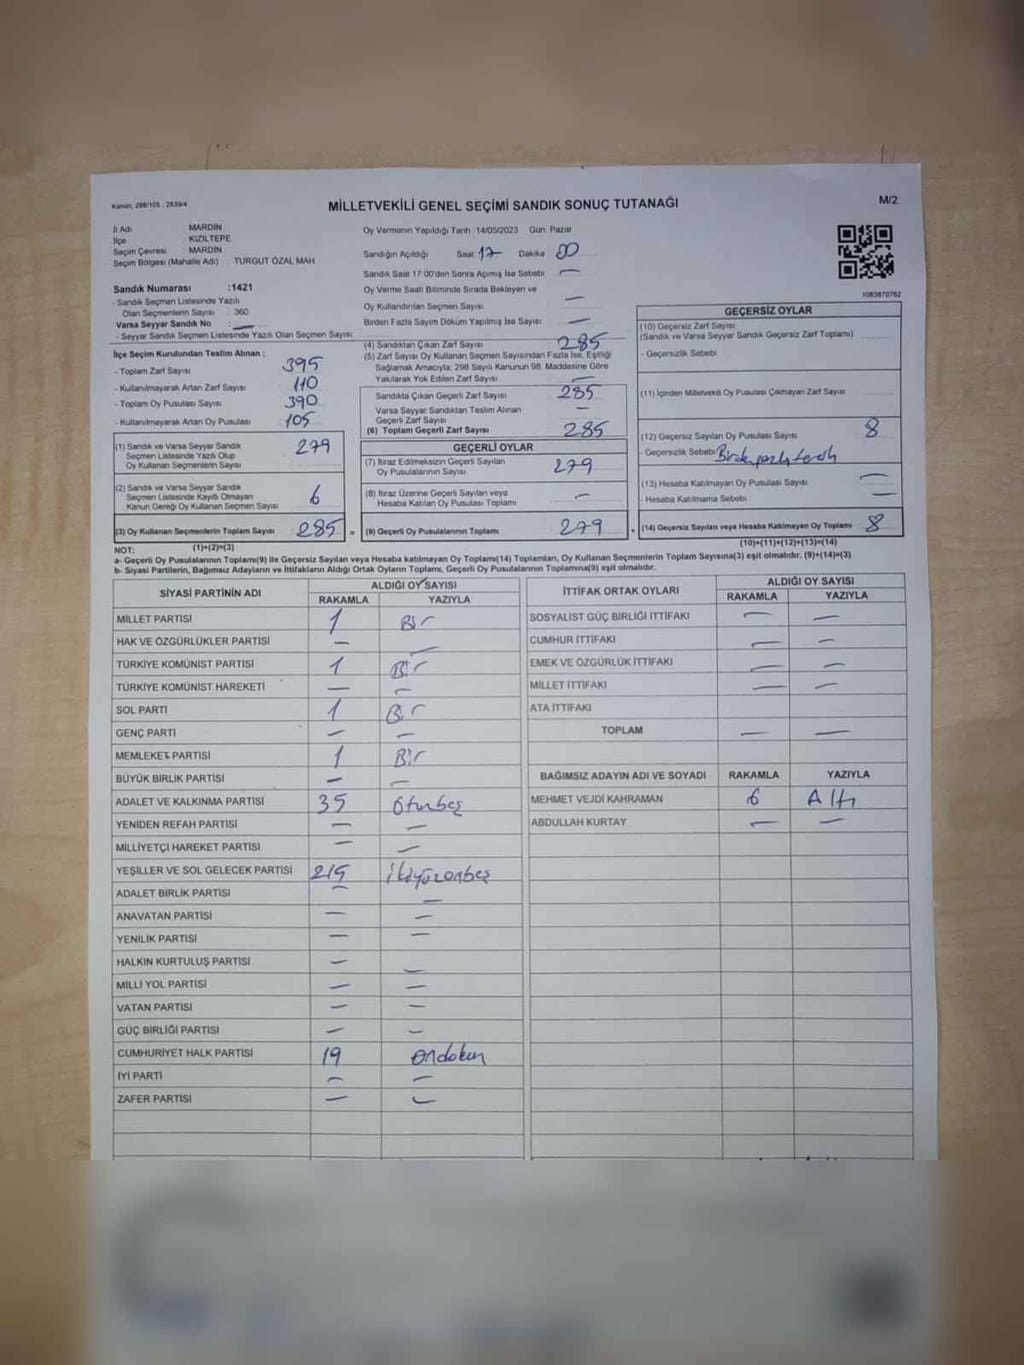 Kanun, 298/105 ; 2839/4
MİLLETVEKİLİ GENEL SEÇİMİ SANDIK SONUÇ TUTANAĞI
M/2
İl Adı MARDİN
İlçe KIZILTEPE
Seçim Çevresi MARDİN
Seçim Bölgesi (Mahalle Adı) TURGUT ÖZAL MAH.
Oy Vermenin Yapıldığı Tarih :14/05/2023 Gün: Pazar
Sandığın Açıldığı Saat 17 Dakika 00
Sandık Saat 17:00'den Sonra Açılmış İse Sebebi —
Oy Verme Saati Bitiminde Sırada Bekleyen ve
Oy Kullandırılan Seçmen Sayısı —
Birden Fazla Sayım Döküm Yapılmış İse Sayısı —
1083870762
Sandık Numarası :1421
- Sandık Seçmen Listesinde Yazılı
Olan Seçmenlerin Sayısı : 360
Varsa Seyyar Sandık No : —
- Seyyar Sandık Seçmen Listesinde Yazılı Olan Seçmen Sayısı:
İlçe Seçim Kurulundan Teslim Alınan ;
- Toplam Zarf Sayısı 395
- Kullanılmayarak Artan Zarf Sayısı 110
- Toplam Oy Pusulası Sayısı 390
- Kullanılmayarak Artan Oy Pusulası 105
(1) Sandık ve Varsa Seyyar Sandık
Seçmen Listesinde Yazılı Olup
Oy Kullanan Seçmenlerin Sayısı 279
(2) Sandık ve Varsa Seyyar Sandık
Seçmen Listesinde Kayıtlı Olmayan
Kanun Gereği Oy Kullanan Seçmen Sayısı 6
(3) Oy Kullanan Seçmenlerin Toplam Sayısı 285 =
(1)+(2)=(3)
(4) Sandıktan Çıkan Zarf Sayısı 285
(5) Zarf Sayısı Oy Kullanan Seçmen Sayısından Fazla İse, Eşitliği
Sağlamak Amacıyla, 298 Sayılı Kanunun 98. Maddesine Göre
Yakılarak Yok Edilen Zarf Sayısı —
Sandıkta Çıkan Geçerli Zarf Sayısı 285
Varsa Seyyar Sandıktan Teslim Alınan
Geçerli Zarf Sayısı —
(6) Toplam Geçerli Zarf Sayısı 285
GEÇERLİ OYLAR
(7) İtiraz Edilmeksizin Geçerli Sayılan
Oy Pusulalarının Sayısı 279
(8) İtiraz Üzerine Geçerli Sayılan veya
Hesaba Katılan Oy Pusulası Toplamı —
(9) Geçerli Oy Pusulalarının Toplamı 279 +
GEÇERSİZ OYLAR
(10) Geçersiz Zarf Sayısı
(Sandık ve Varsa Seyyar Sandık Geçersiz Zarf Toplamı)
- Geçersizlik Sebebi
(11) İçinden Milletvekili Oy Pusulası Çıkmayan Zarf Sayısı
(12) Geçersiz Sayılan Oy Pusulası Sayısı 8
- Geçersizlik Sebebi Birden fazla tercih
(13) Hesaba Katılmayan Oy Pusulası Sayısı —
- Hesaba Katılmama Sebebi —
(14) Geçersiz Sayılan veya Hesaba Katılmayan Oy Toplamı 8
(10)+(11)+(12)+(13)=(14)
NOT:
a- Geçerli Oy Pusulalarının Toplamı(9) ile Geçersiz Sayılan veya Hesaba katılmayan Oy Toplamı(14) Toplamları, Oy Kullanan Seçmenlerin Toplam Sayısına(3) eşit olmalıdır. (9)+(14)=(3)
b- Siyasi Partilerin, Bağımsız Adayların ve İttifakların Aldığı Ortak Oyların Toplamı, Geçerli Oy Pusulalarının Toplamına(9) eşit olmalıdır.
SİYASİ PARTİNİN ADI ALDIĞI OY SAYISI
RAKAMLA YAZIYLA
MİLLET PARTİSİ 1 Bir
HAK VE ÖZGÜRLÜKLER PARTİSİ — —
TÜRKİYE KOMÜNİST PARTİSİ 1 Bir
TÜRKİYE KOMÜNİST HAREKETİ — —
SOL PARTİ 1 Bir
GENÇ PARTİ — —
MEMLEKET PARTİSİ 1 Bir
BÜYÜK BİRLİK PARTİSİ — —
ADALET VE KALKINMA PARTİSİ 35 Otuzbeş
YENİDEN REFAH PARTİSİ — —
MİLLİYETÇİ HAREKET PARTİSİ — —
YEŞİLLER VE SOL GELECEK PARTİSİ 215 İkiyüzonbeş
ADALET BİRLİK PARTİSİ — —
ANAVATAN PARTİSİ — —
YENİLİK PARTİSİ — —
HALKIN KURTULUŞ PARTİSİ — —
MİLLİ YOL PARTİSİ — —
VATAN PARTİSİ — —
GÜÇ BİRLİĞİ PARTİSİ — —
CUMHURİYET HALK PARTİSİ 19 ondokuz
İYİ PARTİ — —
ZAFER PARTİSİ — —
İTTİFAK ORTAK OYLARI ALDIĞI OY SAYISI
RAKAMLA YAZIYLA
SOSYALİST GÜÇ BİRLİĞİ İTTİFAKI — —
CUMHUR İTTİFAKI — —
EMEK VE ÖZGÜRLÜK İTTİFAKI — —
MİLLET İTTİFAKI — —
ATA İTTİFAKI
TOPLAM — —
BAĞIMSIZ ADAYIN ADI VE SOYADI RAKAMLA YAZIYLA
MEHMET VEJDİ KAHRAMAN 6 Altı
ABDULLAH KURTAY — —